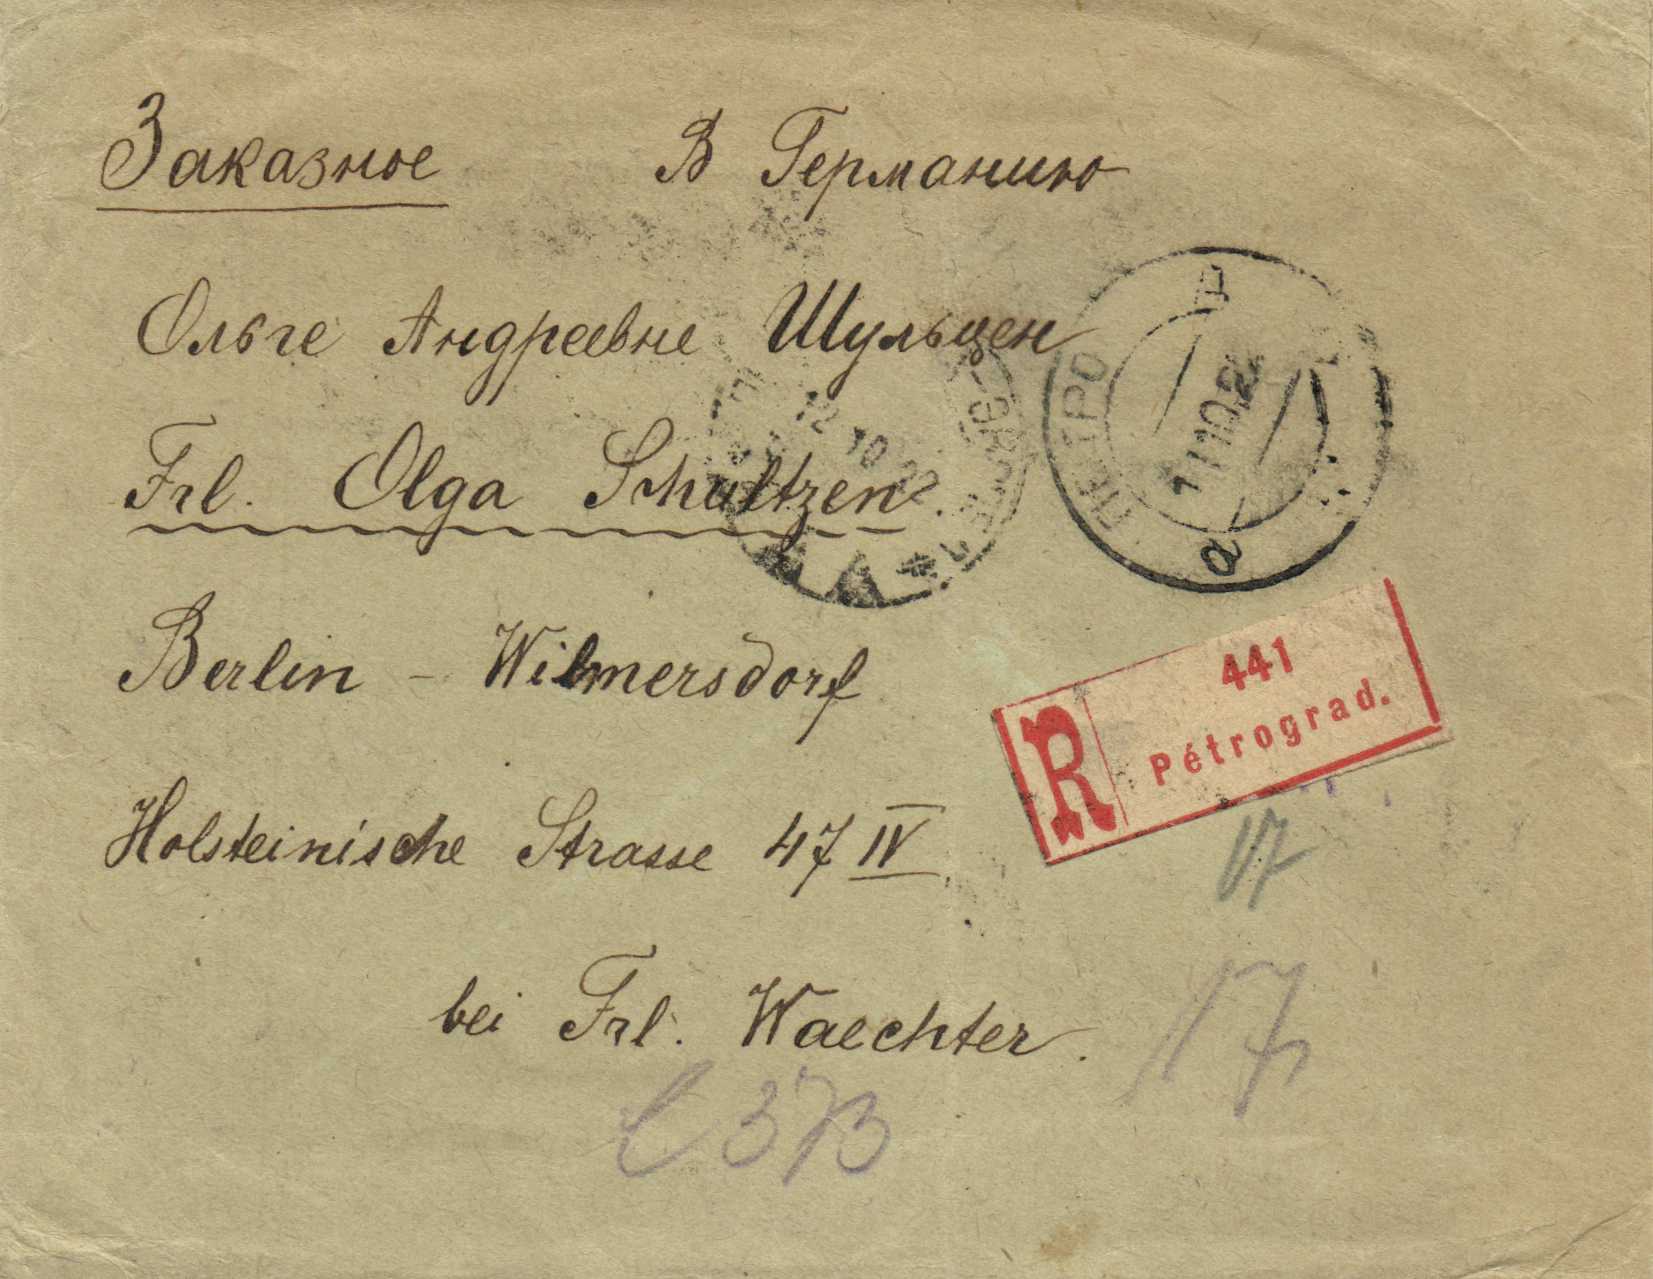 Заказное В Германию
Ольге Андреевне Шульцен
Frl. Olga Schultzen.
Berlin - Wilmersdorf
Holsteinische Strasse 47 IV
bei Frl. Waechter.
ПЕТРО
а
12 10 22
R
441
Pétrograd.
17
17
373